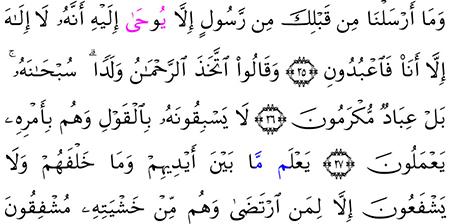 وَمَا أَرْسَلْنَا مِن قَبْلِكَ مِن رَّسُولٍ إِلَّا يُوحَىٰ إِلَيْهِ أَنَّهُۥ لَا إِلَـٰهَ
إِلَّا أَنَا۠ فَٱعْبُدُونِ ﴿٢٥﴾ وَقَالُوا۟ ٱتَّخَذَ ٱلرَّحْمَـٰنُ وَلَدًا ۗ سُبْحَـٰنَهُۥ ۚ
بَلْ عِبَادٌ مُّكْرَمُونَ ﴿٢٦﴾ لَا يَسْبِقُونَهُۥ بِٱلْقَوْلِ وَهُم بِأَمْرِهِۦ
يَعْمَلُونَ ﴿٢٧﴾ يَعْلَم مَّا بَيْنَ أَيْدِيهِمْ وَمَا خَلْفَهُمْ وَلَا
يَشْفَعُونَ إِلَّا لِمَنِ ٱرْتَضَىٰ وَهُم مِّنْ خَشْيَتِهِۦ مُشْفِقُونَ